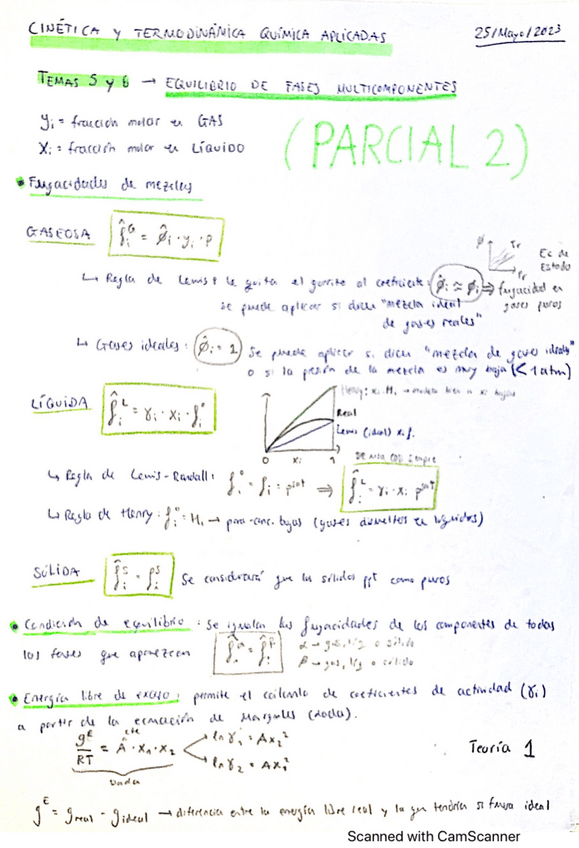 CINÉTICA Y TERMODINÁMICA QUÍMICA APLICADAS
25/Mayo/2023
TEMAS 5 y 6 → EQUILIBRIO DE FASES MULTICOMPONENTES
yi = fracción molar en GAS
xi = fracción molar en LÍQUIDO
(PARCIAL 2)
• Fugacidades de mezclas
GASEOSA f̂iᴳ = ϕ̂i · yi · P
ϕ Tr Pr Ec de Estado
↳ Regla de Lewis: le quita el gorrito al coeficiente: ϕ̂i ≈ ϕi ⇒ fugacidad en gases puros
se puede aplicar si dicen "mezcla ideal
de gases reales"
↳ Gases ideales: ϕ̂i = 1 Se puede aplicar si dicen "mezcla de gases ideales"
o si la presión de la mezcla es muy baja (< 1 atm)
LÍQUIDA f̂iᴸ = γi · xi · fi°
Henry: xi Hi →
Real
Lewis (ideal) xi fi
0 xi 1
se usa casi siempre
↳ Regla de Lewis-Randall: fi° = fi = Pˢᵃᵗ ⇒ f̂iᴸ = γi · xi Pˢᵃᵗ
↳ Regla de Henry: fi° = Hi → para conc. bajas (gases disueltos en líquidos)
SÓLIDA f̂iˢ = fiˢ Se considerará que los sólidos ppt como puros
• Condición de equilibrio: Se igualan las fugacidades de los componentes de todas
las fases que aparezcan f̂iᵅ = f̂iᵝ
α → gas, líq o sólido
β → gas, líq o sólido
• Energía libre de exceso: permite el cálculo de coeficientes de actividad (γi)
a partir de la ecuación de Margules (dada).
gᴱ/RT = A · x₁ · x₂
cte
lnγ₁ = Ax₂²
lnγ₂ = Ax₁²
Dada
Teoría 1
gᴱ = g real - g ideal → diferencia entre la energía libre real y la que tendría si fuera ideal
Scanned with CamScanner